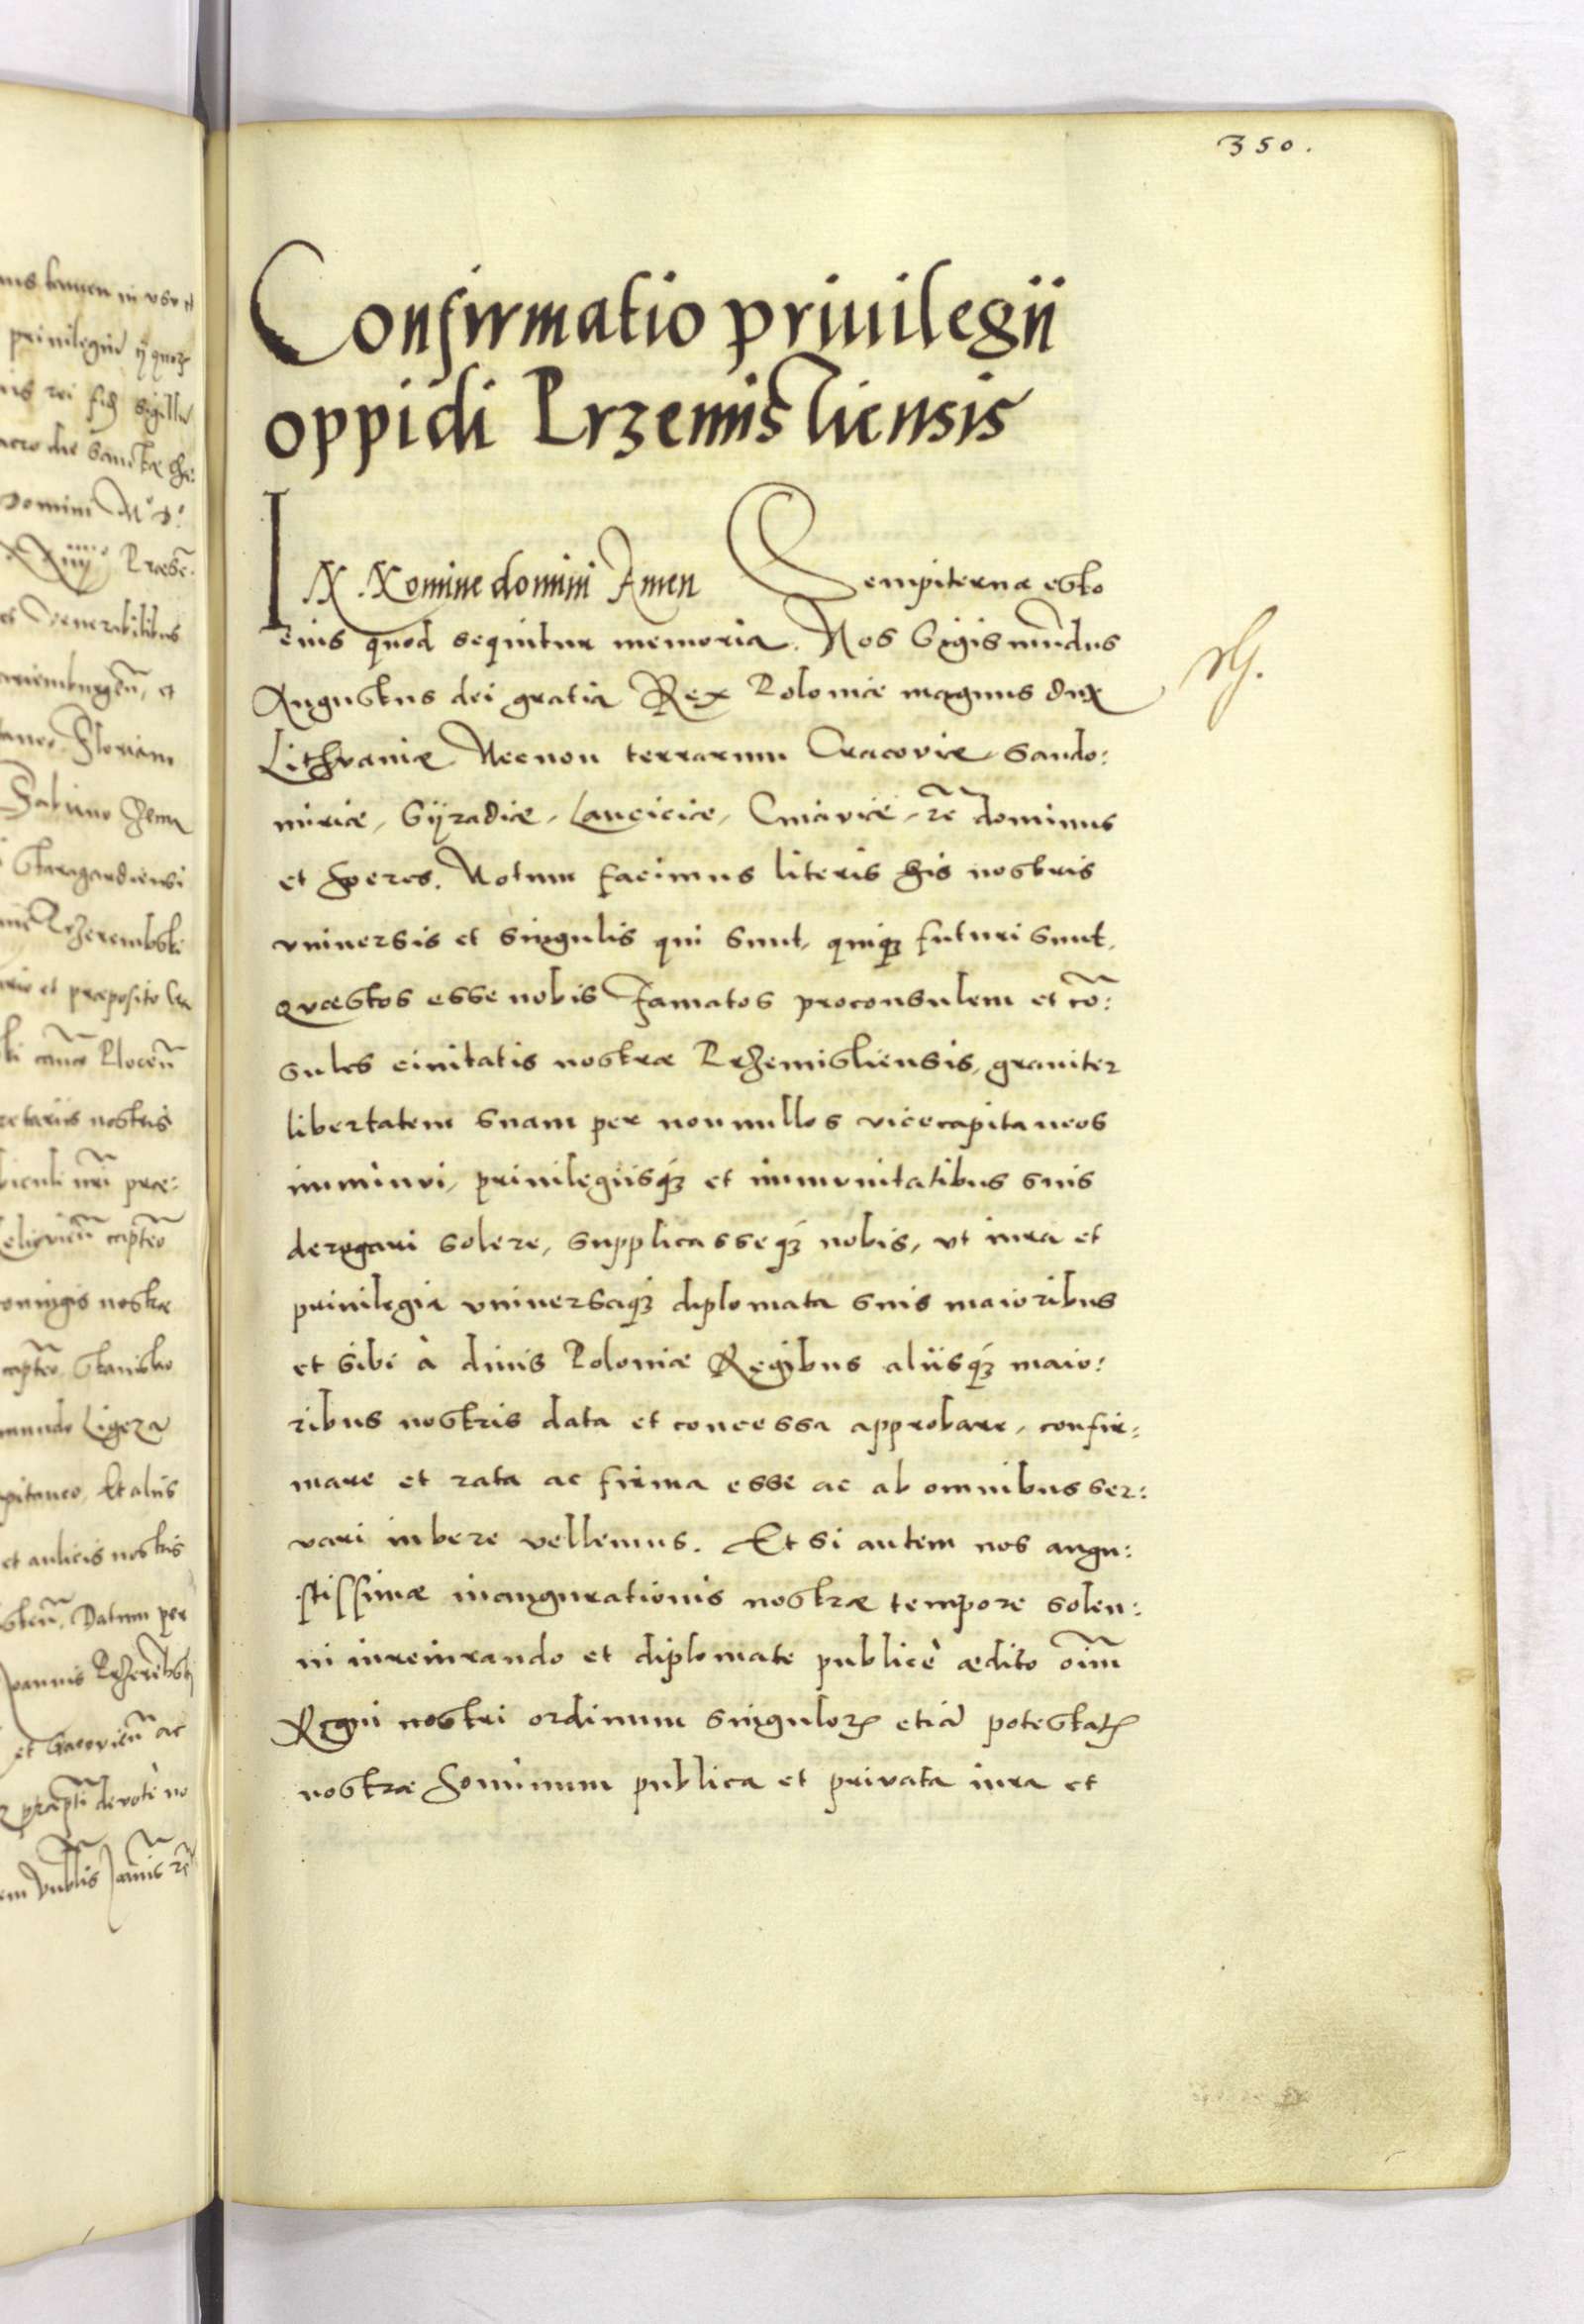 350.
Confirmatio priuilegii
oppidi Przemisliensis
IN Nomine domini Amen Sempiterna esto
eius quod sequitur memoria. Nos Sigismūdus
Augustus dei gratia Rex Poloniæ magnus dux
Lithvaniæ Necnon terrarum Cracoviæ, Sando:
miriæ, Syradiæ, Lanciciæ, Cuiaviæ, rē dominus
et heres. Notum facimus literis his nostris
vniuersis et singulis qui sunt, quiqȝ futuri sunt,
Quæstos esse nobis Famatos proconsulem et cō:
sules ciuitatis nostræ Przemisliensis, grauiter
libertatem suam per nonnullos vicecapitaneos
imminui, priuilegiisqȝ et immunitatibus suis
derogari solere, supplicasseqȝ nobis, vt iura et
priuilegia vniuersaqȝ diplomata suis maioribus
et sibi à diuis Poloniæ Regibus aliisqȝ maio:
ribus nostris data et concessa approbare, confir:
mare et rata ac firma esse ac ab omnibus ser:
vari iubere vellemus. Et si autem nos augu:
stissimæ inaugurationis nostræ tempore solen:
ni iureiurando et diplomate publicè ædito oīm
Regni nostri ordinum singuloꝝ etiā potestatꝭ
nostræ hominum publica et privata iura et